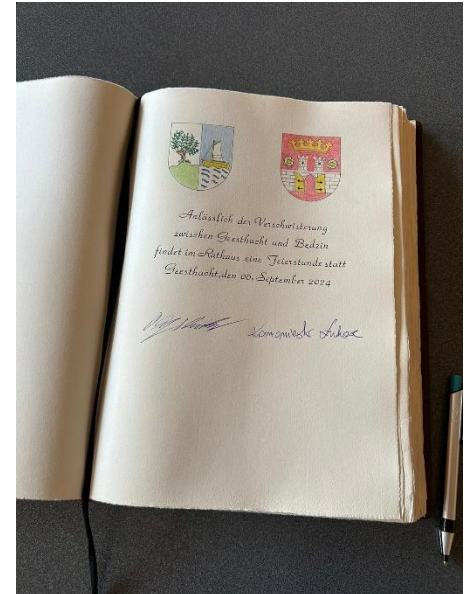 Anlässlich der Verschwisterung
zwischen Geesthacht und Bedzin
findet im Rathaus eine Feierstunde statt
Geesthacht, den 06. September 2024
Lukasz